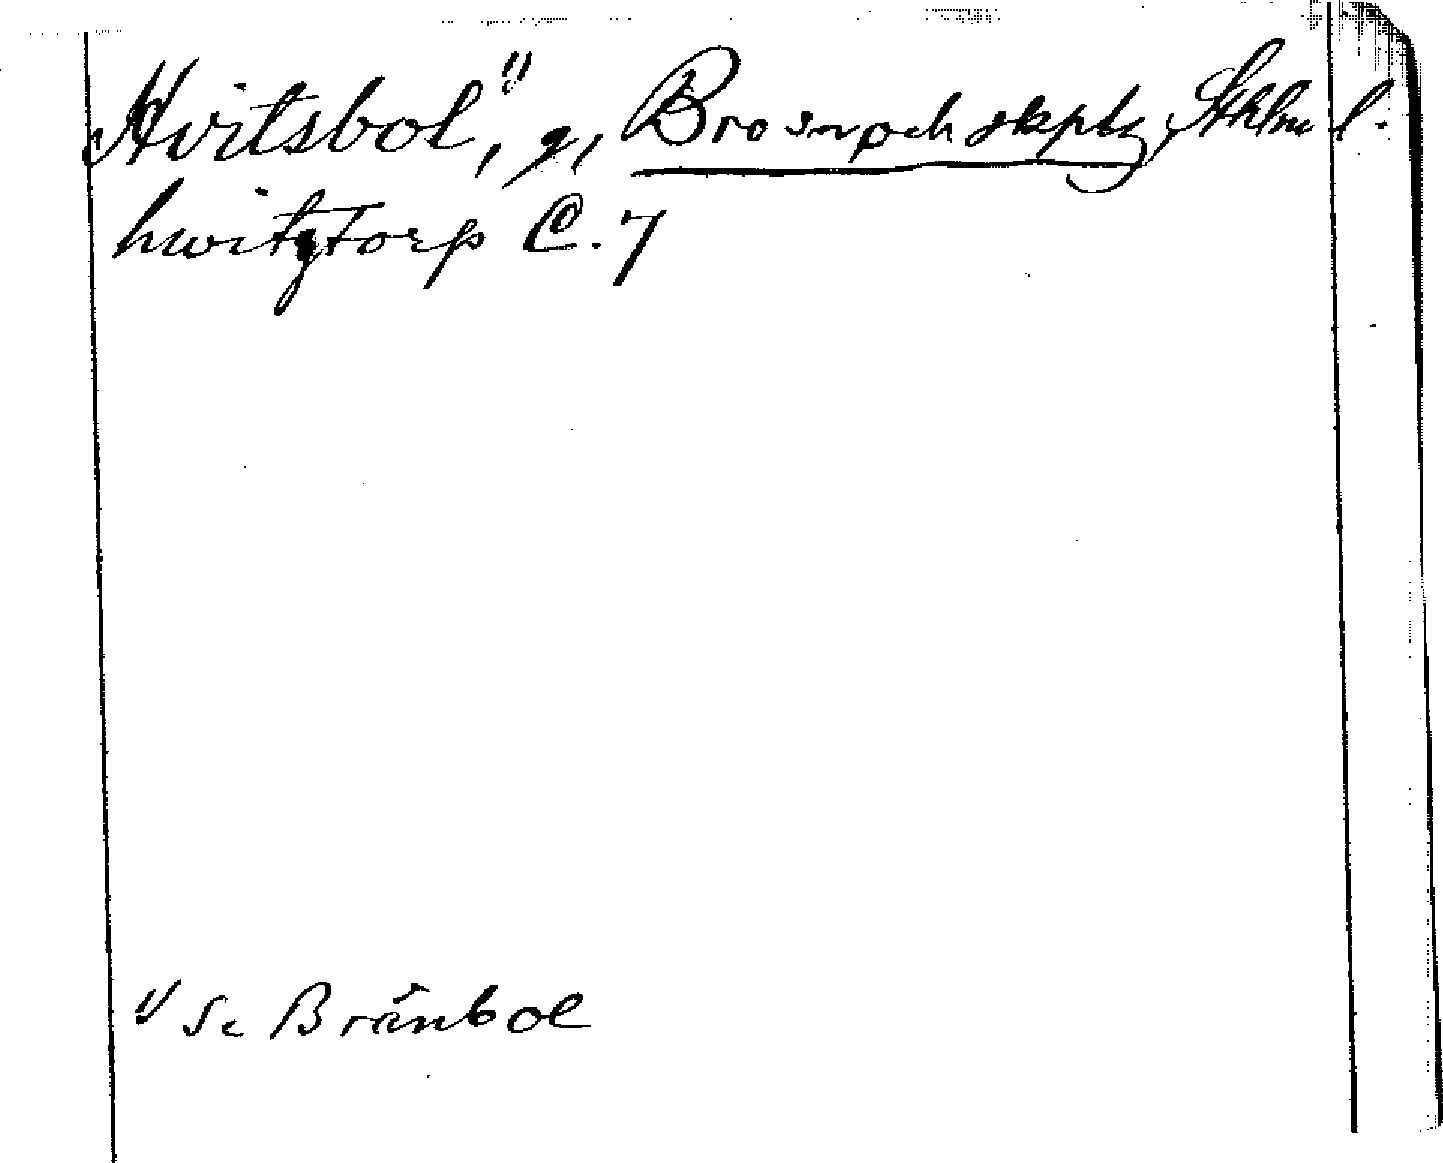 Hvitsbol,¹⁾ g, Bro snpch skptz Sthlm l.
hwitztorp C. 7
¹⁾ Se Bränbol